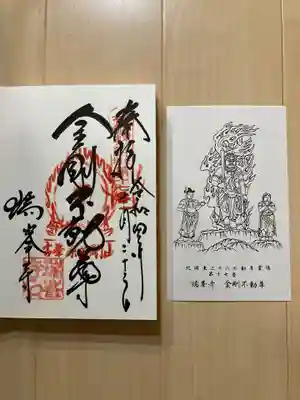 奉拝
令和四年
金剛不動尊
瑞峯寺
北関東三十六不動尊霊場
第十七番
瑞峯寺 金剛不動尊